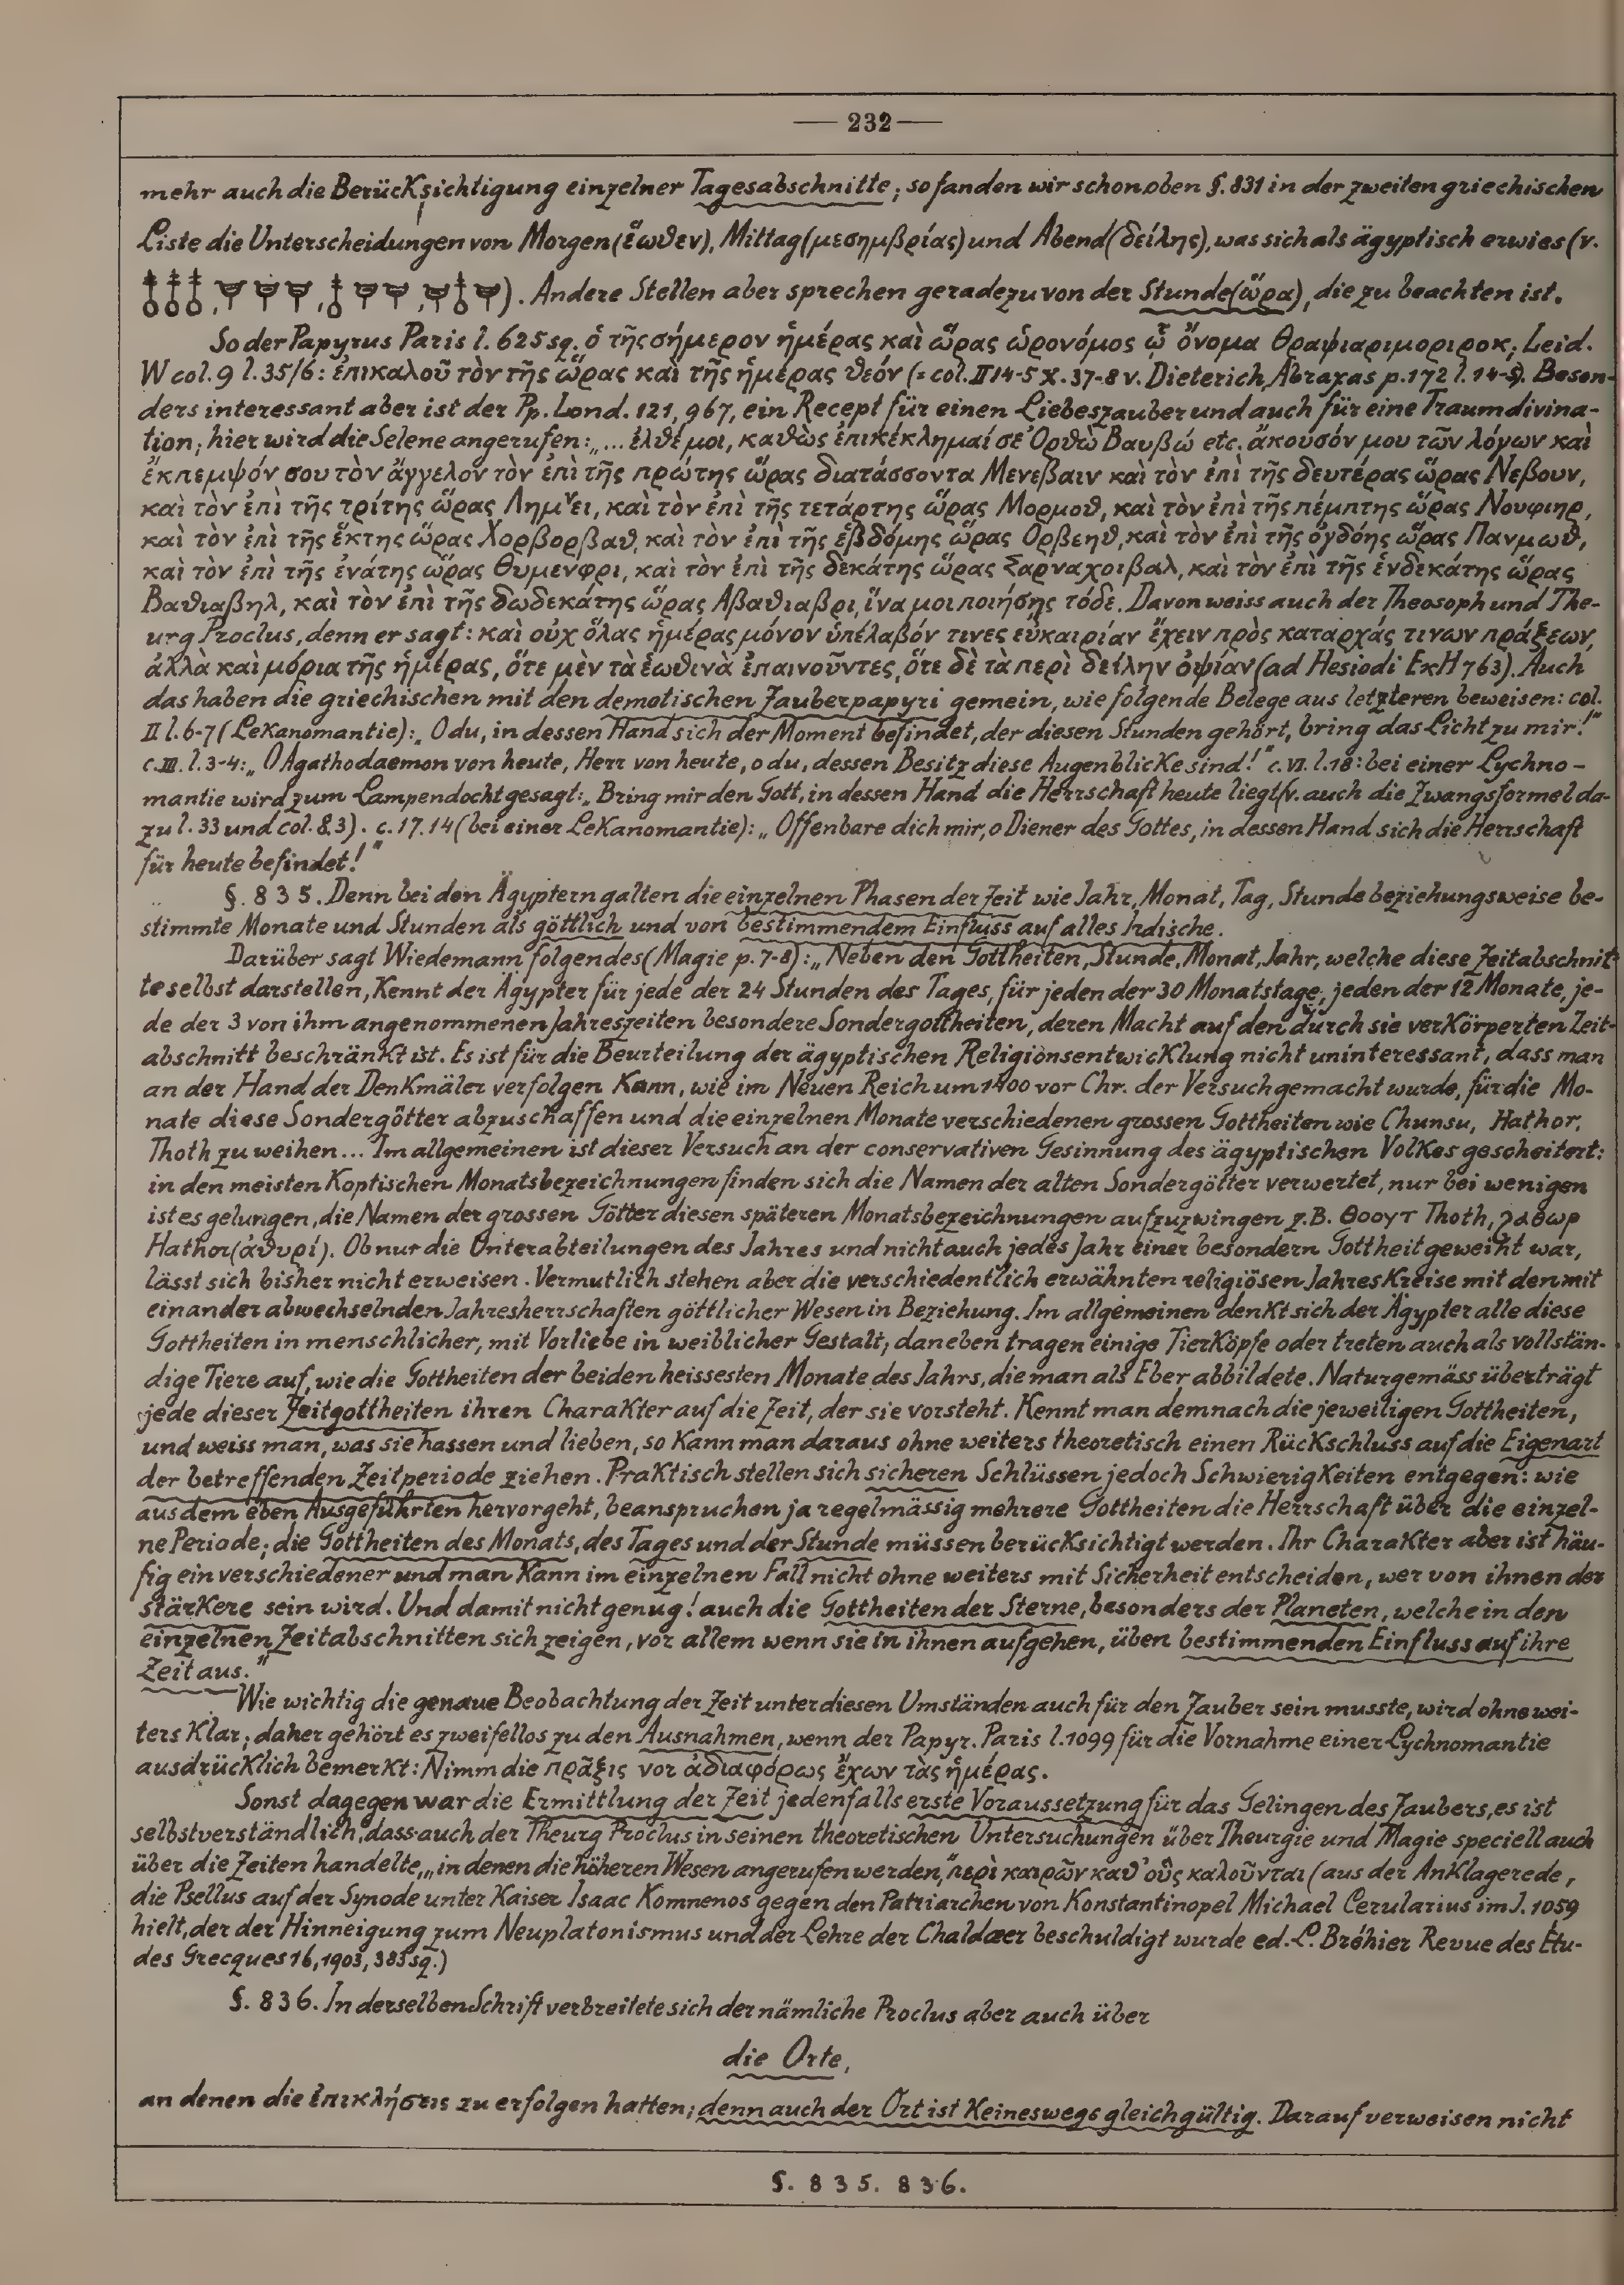 — 232 —
mehr auch die Berücksichtigung einzelner Tagesabschnitte; so fanden wir schon oben §. 831 in der zweiten griechischen
Liste die Unterscheidungen von Morgen (ἕωθεν), Mittag (μεσημβρίας) und Abend (δείλης), was sich als ägyptisch erwies (v.
). Andere Stellen aber sprechen geradezu von der Stunde (ὥρα), die zu beachten ist.
So der Papyrus Paris l. 625 sq. ὁ τῆς σήμερον ἡμέρας καὶ ὥρας ὡρονόμος ᾧ ὄνομα Θραψιαριμοριροκ; Leid.
W col. 9 l. 35/6: ἐπικαλοῦ τὸν τῆς ὥρας καὶ τῆς ἡμέρας θεόν (= col. II 14-5 X. 37-8 v. Dieterich, Abraxas p. 172 l. 14-5). Beson-
ders interessant aber ist der Pp. Lond. 121, 967, ein Recept für einen Liebeszauber und auch für eine Traumdivina-
tion; hier wird die Selene angerufen: „... ἐλθέ μοι, καθὼς ἐπικέκλημαί σε Ὀρθὼ Βαυβώ etc. ἄκουσόν μου τῶν λόγων καὶ
ἔκπεμψόν σου τὸν ἄγγελον τὸν ἐπὶ τῆς πρώτης ὥρας διατάσσοντα Μενεβαιν καὶ τὸν ἐπὶ τῆς δευτέρας ὥρας Νεβουν,
καὶ τὸν ἐπὶ τῆς τρίτης ὥρας Λημνει, καὶ τὸν ἐπὶ τῆς τετάρτης ὥρας Μορμοθ, καὶ τὸν ἐπὶ τῆς πέμπτης ὥρας Νουφιηρ,
καὶ τὸν ἐπὶ τῆς ἕκτης ὥρας Χορβορβαθ, καὶ τὸν ἐπὶ τῆς ἑβδόμης ὥρας Ορβεηθ, καὶ τὸν ἐπὶ τῆς ὀγδόης ὥρας Πανμωθ,
καὶ τὸν ἐπὶ τῆς ἐνάτης ὥρας Θυμενφρι, καὶ τὸν ἐπὶ τῆς δεκάτης ὥρας Σαρναχοιβαλ, καὶ τὸν ἐπὶ τῆς ἑνδεκάτης ὥρας
Βαθιαβηλ, καὶ τὸν ἐπὶ τῆς δωδεκάτης ὥρας Αβαθιαβρι, ἵνα μοι ποιήσῃς τόδε. Davon weiss auch der Theosoph und The-
urg Proclus, denn er sagt: καὶ οὐχ ὅλας ἡμέρας μόνον ὑπέλαβόν τινες εὐκαιρίαν ἔχειν πρὸς καταρχάς τινων πράξεων,
ἀλλὰ καὶ μόρια τῆς ἡμέρας, ὅτε μὲν τὰ ἑωθινὰ ἐπαινοῦντες, ὅτε δὲ τὰ περὶ δείλην ὀψίαν (ad Hesiodi ExH 763). Auch
das haben die griechischen mit den demotischen Zauberpapyri gemein, wie folgende Belege aus letzteren beweisen: col.
II l. 6-7 (Lekanomantie): „O du, in dessen Hand sich der Moment befindet, der diesen Stunden gehört, bring das Licht zu mir!"
c. III. l. 3-4: „O Agathodaemon von heute, Herr von heute, o du, dessen Besitz diese Augenblicke sind!" c. VI. l. 18: bei einer Lychno-
mantie wird zum Lampendocht gesagt: „Bring mir den Gott, in dessen Hand die Herrschaft heute liegt (v. auch die Zwangsformel da-
zu l. 33 und col. 8. 3). c. 17. 14 (bei einer Lekanomantie): „Offenbare dich mir, o Diener des Gottes, in dessen Hand sich die Herrschaft
für heute befindet!"
§. 835. Denn bei den Ägyptern galten die einzelnen Phasen der Zeit wie Jahr, Monat, Tag, Stunde beziehungsweise be-
stimmte Monate und Stunden als göttlich und von bestimmendem Einfluss auf alles Irdische.
Darüber sagt Wiedemann folgendes (Magie p. 7-8): „Neben den Gottheiten, Stunde, Monat, Jahr, welche diese Zeitabschnit-
te selbst darstellen, kennt der Ägypter für jede der 24 Stunden des Tages, für jeden der 30 Monatstage, jeden der 12 Monate, je-
de der 3 von ihm angenommenen Jahreszeiten besondere Sondergottheiten, deren Macht auf den durch sie verkörperten Zeit-
abschnitt beschränkt ist. Es ist für die Beurteilung der ägyptischen Religionsentwicklung nicht uninteressant, dass man
an der Hand der Denkmäler verfolgen kann, wie im Neuen Reich um 1400 vor Chr. der Versuch gemacht wurde, für die Mo-
nate diese Sondergötter abzuschaffen und die einzelnen Monate verschiedenen grossen Gottheiten wie Chunsu, Hathor,
Thoth zu weihen... Im allgemeinen ist dieser Versuch an der conservativen Gesinnung des ägyptischen Volkes gescheitert:
in den meisten koptischen Monatsbezeichnungen finden sich die Namen der alten Sondergötter verwertet, nur bei wenigen
ist es gelungen, die Namen der grossen Götter diesen späteren Monatsbezeichnungen aufzuzwingen z.B. ⲑⲟⲟⲩⲧ Thoth, ϩⲁⲑⲱⲣ
Hathor (ἀθυρί). Ob nur die Unterabteilungen des Jahres und nicht auch jedes Jahr einer besondern Gottheit geweiht war,
lässt sich bisher nicht erweisen. Vermutlich stehen aber die verschiedentlich erwähnten religiösen Jahreskreise mit den mit
einander abwechselnden Jahresherrschaften göttlicher Wesen in Beziehung. Im allgemeinen denkt sich der Ägypter alle diese
Gottheiten in menschlicher, mit Vorliebe in weiblicher Gestalt, daneben tragen einige Tierköpfe oder treten auch als vollstän-
dige Tiere auf, wie die Gottheiten der beiden heissesten Monate des Jahrs, die man als Eber abbildete. Naturgemäss überträgt
jede dieser Zeitgottheiten ihren Charakter auf die Zeit, der sie vorsteht. Kennt man demnach die jeweiligen Gottheiten,
und weiss man, was sie hassen und lieben, so kann man daraus ohne weiters theoretisch einen Rückschluss auf die Eigenart
der betreffenden Zeitperiode ziehen. Praktisch stellen sich sicheren Schlüssen jedoch Schwierigkeiten entgegen: wie
aus dem eben Ausgeführten hervorgeht, beanspruchen ja regelmässig mehrere Gottheiten die Herrschaft über die einzel-
ne Periode; die Gottheiten des Monats, des Tages und der Stunde müssen berücksichtigt werden. Ihr Charakter aber ist häu-
fig ein verschiedener und man kann im einzelnen Fall nicht ohne weiters mit Sicherheit entscheiden, wer von ihnen der
stärkere sein wird. Und damit nicht genug! auch die Gottheiten der Sterne, besonders der Planeten, welche in den
einzelnen Zeitabschnitten sich zeigen, vor allem wenn sie in ihnen aufgehen, üben bestimmenden Einfluss auf ihre
Zeit aus."
Wie wichtig die genaue Beobachtung der Zeit unter diesen Umständen auch für den Zauber sein musste, wird ohne wei-
ters klar; daher gehört es zweifellos zu den Ausnahmen, wenn der Papyr. Paris l. 1099 für die Vornahme einer Lychnomantie
ausdrücklich bemerkt: Nimm die πρᾶξις vor ἀδιαφόρως ἔχων τὰς ἡμέρας.
Sonst dagegen war die Ermittlung der Zeit jedenfalls erste Voraussetzung für das Gelingen des Zaubers, es ist
selbstverständlich, dass auch der Theurg Proclus in seinen theoretischen Untersuchungen über Theurgie und Magie speciell auch
über die Zeiten handelte, „in denen die höheren Wesen angerufen werden," περὶ καιρῶν καθ' οὓς καλοῦνται (aus der Anklagerede,
die Psellus auf der Synode unter Kaiser Isaac Komnenos gegen den Patriarchen von Konstantinopel Michael Cerularius im J. 1059
hielt, der der Hinneigung zum Neuplatonismus und der Lehre der Chaldæer beschuldigt wurde ed. L. Bréhier Revue des Étu-
des Grecques 16, 1903, 383 sq.)
§. 836. In derselben Schrift verbreitete sich der nämliche Proclus aber auch über
die Orte,
an denen die ἐπικλήσεις zu erfolgen hatten; denn auch der Ort ist keineswegs gleichgültig. Darauf verweisen nicht
§. 835. 836.